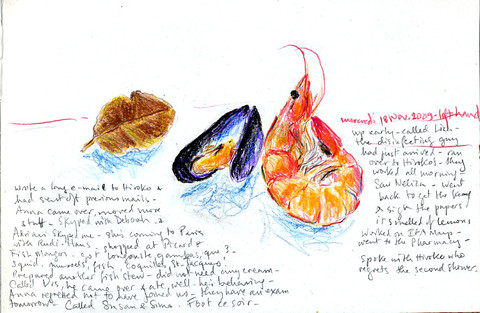 mercredi 18 Nov. 2009 - left hand
up early - called Liel -
the disinfecting guy
had just arrived - ran
over to Hiroko's - they
worked all morning -
Saw Neliza - went
back to get the key
& sign the papers /
it smelled of Lemons
Worked on ITA Map -
went to the Pharmacy -
spoke with Hiroko who
regrets the second shower.
wrote a long e-mail to Hiroko &
had sent off previous mails -
Anna came over, moved more
stuff - skyped with Deborah &
Adrian Skyped me - She's coming to Paris
with Rudi-Hans. shopped at Picard &
Fish mongers - got langouste, gambas, que?
squid, mussels, fish, coquilles St. Jacques,
Prepared another fish stew - did not need any cream -
Called Urs, he came over & ate, well - he's behaving -
Anna regretted not to have joined us - they have an exam
tomorrow - Called Susan & Simo. Foot ce soir -